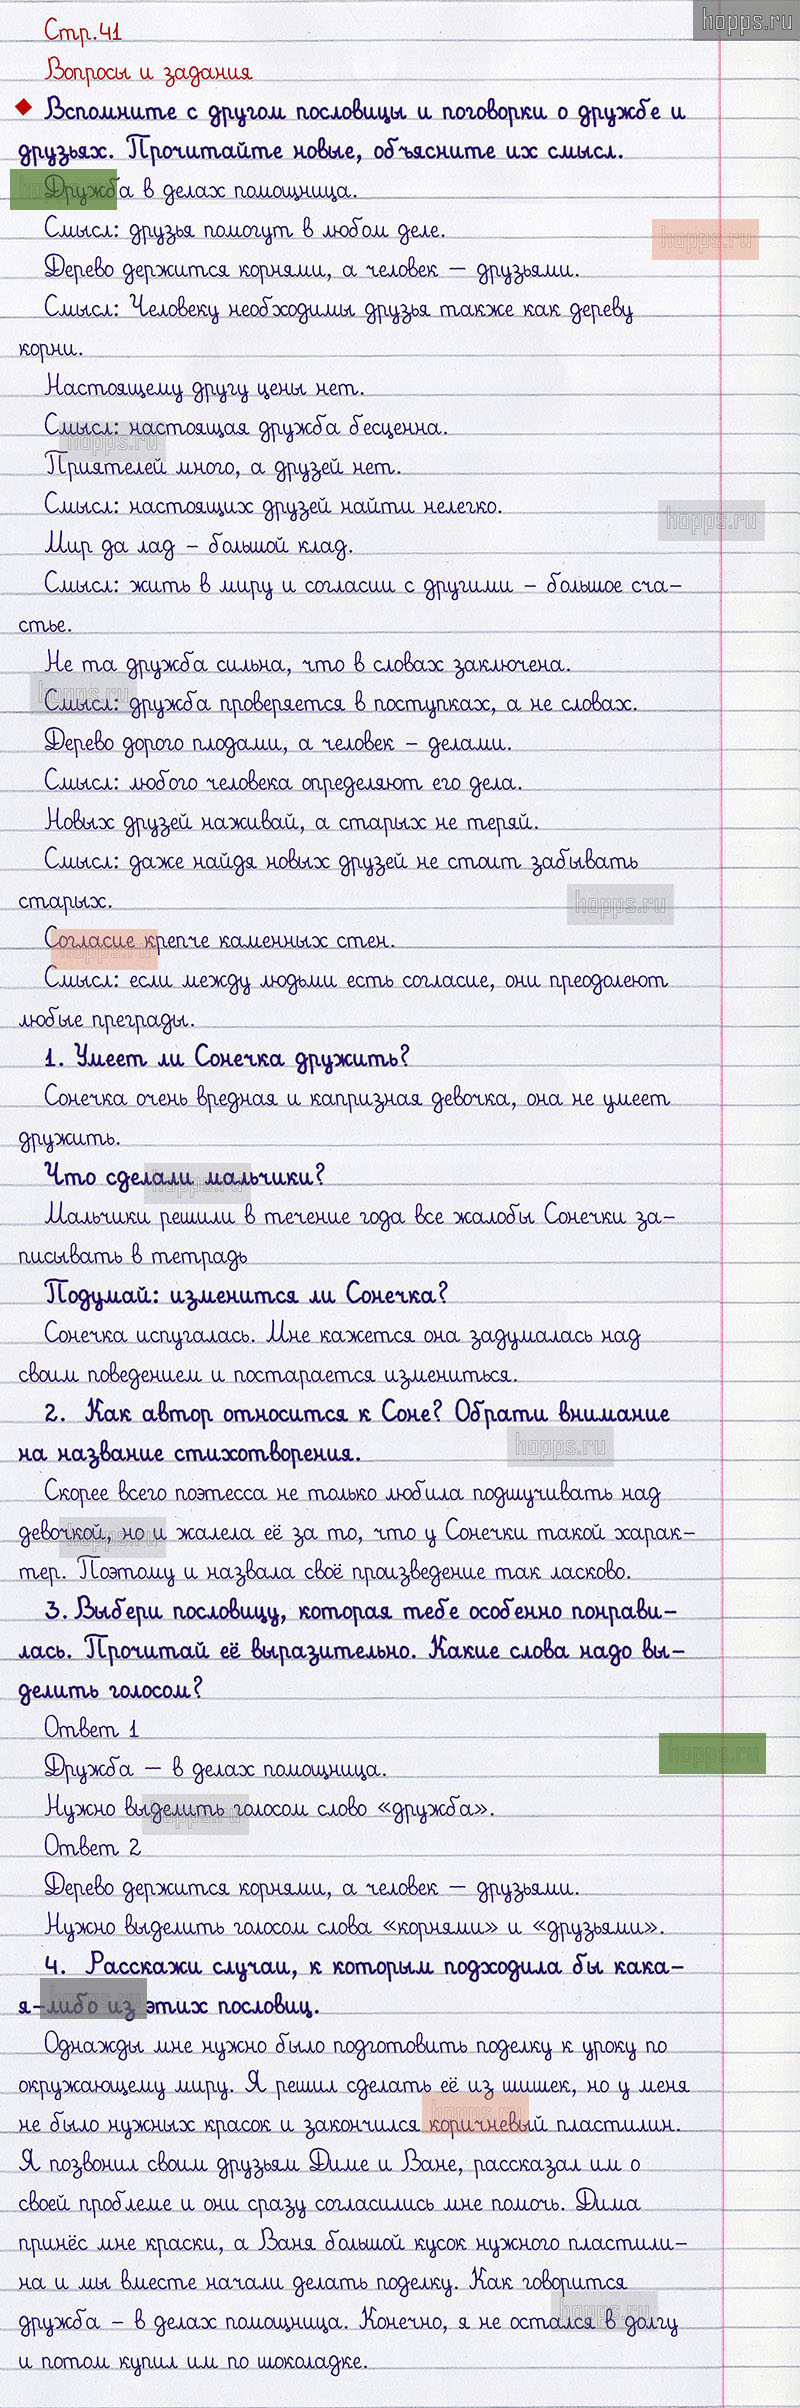 hopps.ru
Стр.41
Вопросы и задания
Вспомните с другом пословицы и поговорки о дружбе и
друзьях. Прочитайте новые, объясните их смысл.
Дружба в делах помощница.
Смысл: друзья помогут в любом деле.
hopps.ru
Дерево держится корнями, а человек — друзьями.
Смысл: Человеку необходимы друзья также как дереву
корни.
Настоящему другу цены нет.
Смысл: настоящая дружба бесценна.
hopps.ru
Приятелей много, а друзей нет.
Смысл: настоящих друзей найти нелегко.
hopps.ru
Мир да лад – большой клад.
Смысл: жить в миру и согласии с другими – большое сча-
стье.
Не та дружба сильна, что в словах заключена.
hopps.ru
Смысл: дружба проверяется в поступках, а не словах.
Дерево дорого плодами, а человек – делами.
Смысл: любого человека определяют его дела.
Новых друзей наживай, а старых не теряй.
Смысл: даже найдя новых друзей не стоит забывать
старых.
hopps.ru
Согласие крепче каменных стен.
hopps.ru
Смысл: если между людьми есть согласие, они преодолеют
любые преграды.
1. Умеет ли Сонечка дружить?
Сонечка очень вредная и капризная девочка, она не умеет
дружить.
Что сделали мальчики?
hopps.ru
Мальчики решили в течение года все жалобы Сонечки за-
писывать в тетрадь
Подумай: изменится ли Сонечка?
Сонечка испугалась. Мне кажется она задумалась над
своим поведением и постарается измениться.
2. Как автор относится к Соне? Обрати внимание
на название стихотворения.
hopps.ru
Скорее всего поэтесса не только любила подшучивать над
девочкой, но и жалела её за то, что у Сонечки такой харак-
hopps.ru
тер. Поэтому и назвала своё произведение так ласково.
3. Выбери пословицу, которая тебе особенно понрави-
лась. Прочитай её выразительно. Какие слова надо вы-
делить голосом?
Ответ 1
hopps.ru
Дружба — в делах помощница.
Нужно выделить голосом слово «дружба».
hopps.ru
Ответ 2
Дерево держится корнями, а человек — друзьями.
Нужно выделить голосом слова «корнями» и «друзьями».
4. Расскажи случаи, к которым подходила бы кака-
я-либо из этих пословиц.
Однажды мне нужно было подготовить поделку к уроку по
окружающему миру. Я решил сделать её из шишек, но у меня
не было нужных красок и закончился коричневый пластилин.
hopps.ru
Я позвонил своим друзьям Диме и Ване, рассказал им о
своей проблеме и они сразу согласились мне помочь. Дима
принёс мне краски, а Ваня большой кусок нужного пластили-
на и мы вместе начали делать поделку. Как говорится
hopps.ru
дружба – в делах помощница. Конечно, я не остался в долгу
и потом купил им по шоколадке.